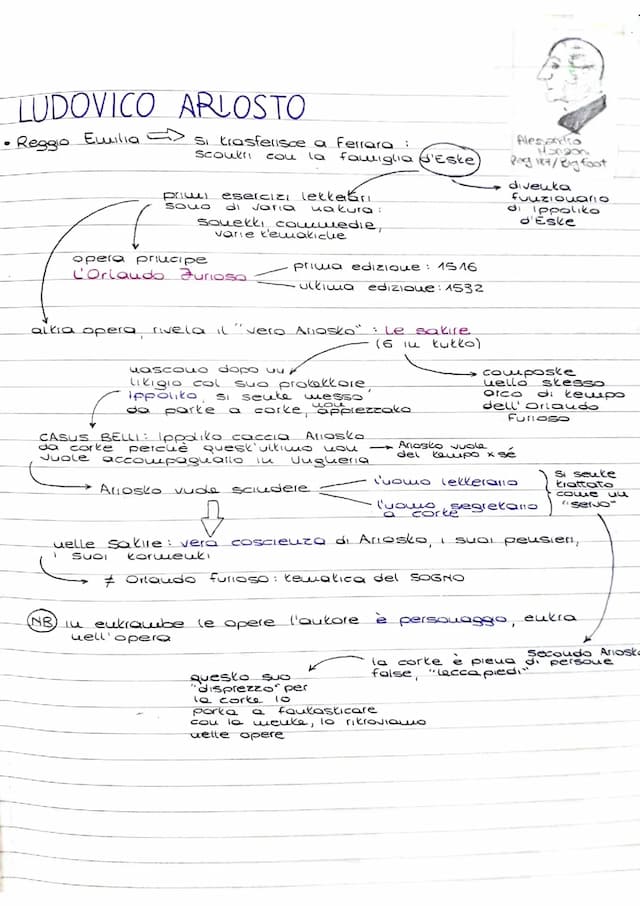 LUDOVICO ARIOSTO
Alessandro
Manzoni
Pag 187/Bigfoot
• Reggio Emilia ⇒ si trasferisce a Ferrara :
scoutri con la famiglia d'Este
primi esercizi letterari
sono di varia natura:
sonetti, commedie,
varie tematiche
diventa
funzionario
di Ippolito
d'Este
opera principe
L'Orlando Furioso
prima edizione: 1516
ultima edizione: 1532
altra opera, rivela il "vero Ariosto" : Le satire
(6 in tutto)
nascono dopo un
litigio col suo protettore,
Ippolito, si sente messo
da parte a corte, non apprezzato
composte
nello stesso
arco di tempo
dell'Orlando
Furioso
CASUS BELLI: Ippolito caccia Ariosto
da corte perchè quest'ultimo non
vuole accompagnarlo in Ungheria
→ Ariosto vuole
del tempo x sé
Ariosto vuole scindere
l'uomo letterario
l'uomo segretario
a corte
si sente
trattato
come un
"servo"
nelle satire: vera coscienza di Ariosto, i suoi pensieri,
i suoi tormenti
≠ Orlando furioso: tematica del SOGNO
NB in entrambe le opere l'autore è personaggio, entra
nell'opera
Secondo Ariosto
la corte è piena di persone
false, "leccapiedi"
questo suo
"disprezzo" per
la corte lo
porta a fantasticare
con la mente, lo ritroviamo
nelle opere